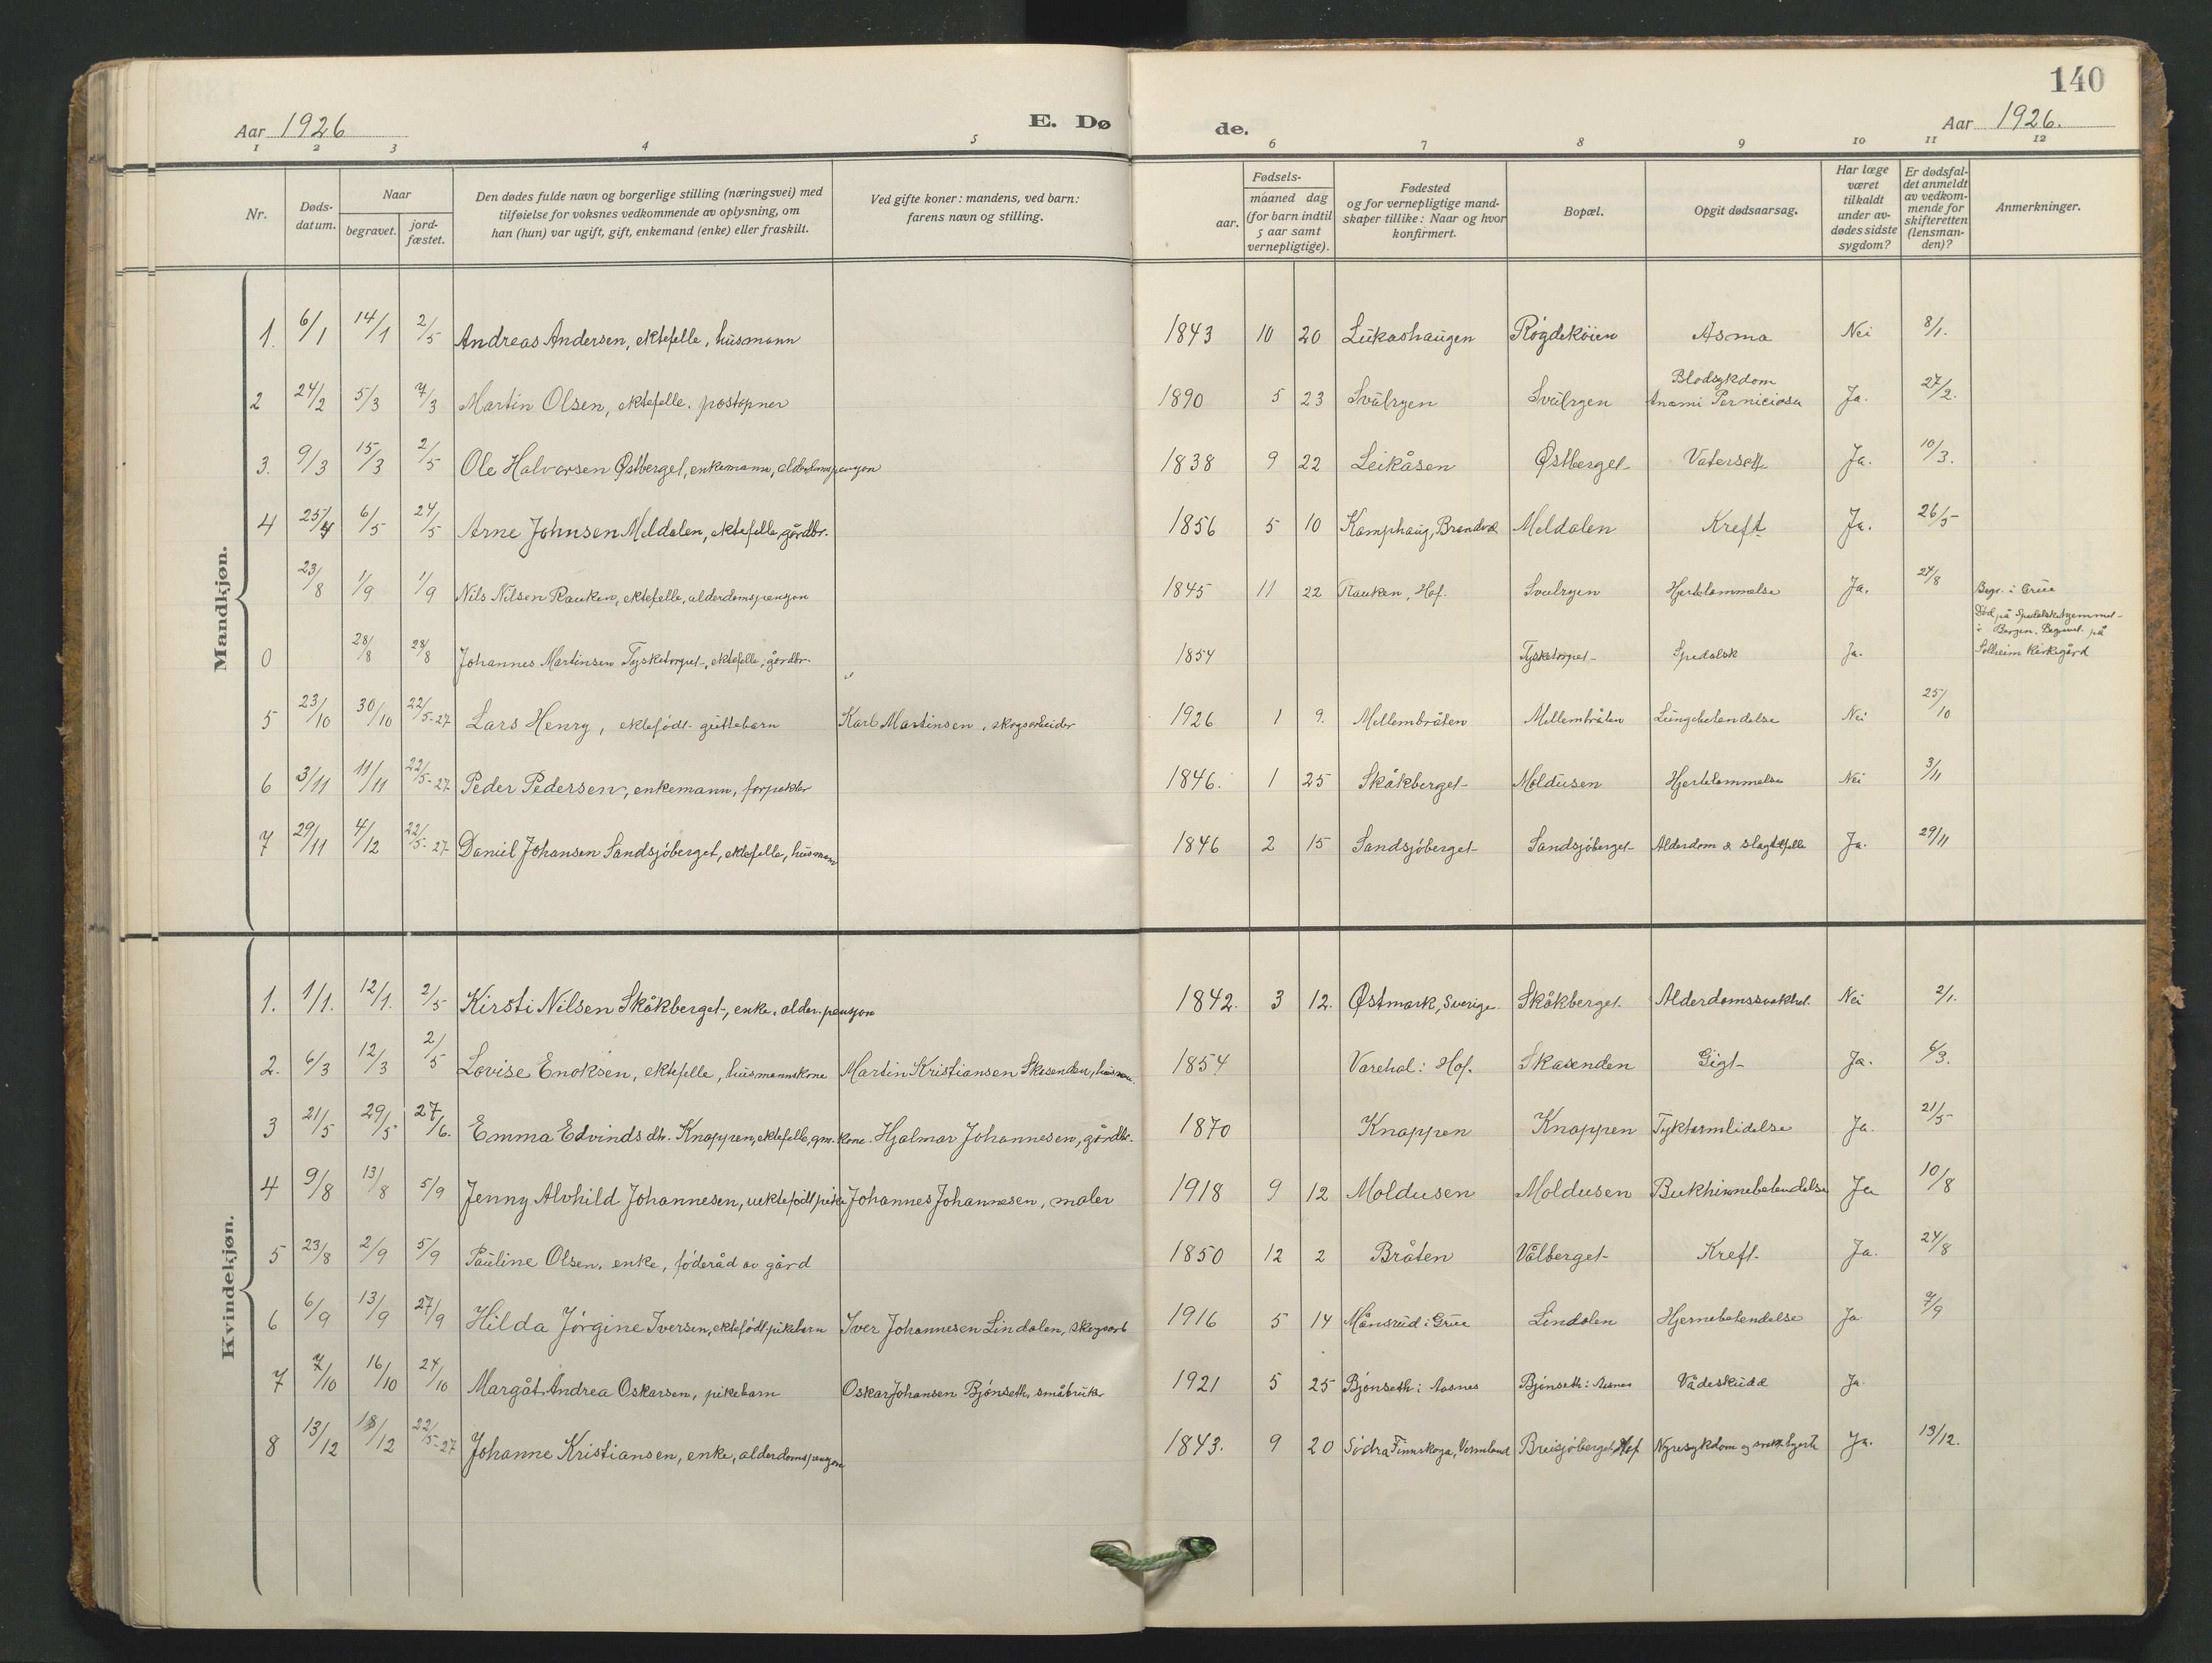 140
Aar 1926 E. Dø de. Aar 1926.
1 2 3 4 5 6 7 8 9 10 11 12
Nr.
Døds-
datum.
Naar
begravet.
jord-
fæstet.
Den dødes fulde navn og borgerlige stilling (næringsvei) med
tilføielse for voksnes vedkommende av oplysning, om
han (hun) var ugift, gift, enkemand (enke) eller fraskilt.
Ved gifte koner: mandens, ved barn:
farens navn og stilling.
Fødsels-
aar.
maaned dag
(for barn indtil
5 aar samt
vernepligtige).
Fødested
og for vernepligtige mand-
skaper tillike: Naar og hvor
konfirmert.
Bopæl.
Opgit dødsaarsag.
Har læge
været
tilkaldt
under av-
dødes sidste
sygdom?
Er dødsfal-
det anmeldt
av vedkom-
mende for
skifteretten
(lensman-
den)?
Anmerkninger.
Mandkjøn.
1. 6/1 14/1 2/5 Andreas Andersen, ektefelle, husmann 1843 10 20 Lukashaugen Rögdeköien Asma Nei 8/1.
2 24/2 5/3 7/3 Martin Olsen, ektefelle. postopner 1890 5 23 Svulryen Svulryen Blodsykdom Anæmi Perniciosa Ja. 27/2.
3. 9/3 15/3 2/5 Ole Halvorsen Østberget, enkemann, alderdomspensjon 1838 9 22 Leikåsen Østberget Vatersott Ja. 10/3.
4 25/4 6/5 24/5 Arne Johnsen Meldalen, ektefelle, gårdbr. 1856 5 10 Kamphaug, Brandval Meldalen Kreft Ja. 26/5
23/8 1/9 1/9 Nils Nilsen Rauken, ektefelle, alderdomspensjon 1845 11 22 Rauken, Hof. Svulryen Hjertelammelse Ja. 24/8 Begr. i Grue
0 28/8 28/8 Johannes Martinsen Tysketorpet, ektefelle, gårdbr. 1854 Tysketorpet Spedalsk Ja. Död på Spedalskehjemmet
i Bergen. Begravet på
Solheim Kirkegård
5 23/10 30/10 22/5-27 Lars Henry, ektefødt guttebarn Karl Martinsen, skogsarbeider 1926 1 9. Mellembråten Mellembråten Lungebetendelse Nei 25/10
6 3/11 11/11 22/5-27 Peder Pedersen, enkemann, forpakter 1846. 1 25 Skåkberget Moldusen Hjertelammelse Nei 3/11
7 29/11 4/12 22/5-27 Daniel Johansen Sandsjöberget, ektefelle, husmann 1846 2 15 Sandsjöberget Sandsjöberget Alderdom & slagtilfelle Ja. 29/11
Kvindekjøn.
1. 1/1. 12/1. 2/5 Kirsti Nilsen Skåkberget, enke, alder. pensjon 1842. 3 12. Østmark, Sverige. Skåkberget. Alderdomssvakhet. Nei 2/1.
2. 6/3 12/3 2/5 Lovise Enoksen, ektefelle, husmannskone Martin Kristiansen Skasenden, husm. 1854 Varehol i Hof. Skasenden Gigt Ja. 6/3.
3 21/5 29/5 27/6. Emma Edvinds dtr. Knappen, ektefelle, gm.kone. Hjalmar Johannesen, gårdbr. 1870 Knappen Knappen Tyktarmlidelse Ja. 21/5
4 9/8 13/8 5/9 Jenny Alvhild Johannesen, uektefödt pike Johannes Johannesen, maler 1918 9 12 Moldusen Moldusen Bukhinnebetendelse Ja 10/8
5 23/8 2/9 5/9 Pauline Olsen, enke, föderåd av gård 1850 12 2 Bråten Vålberget Kreft. Ja. 24/8
6 6/9 13/9 27/9 Hilda Jörgine Iversen, ektefödt pikebarn Iver Johannesen Lindalen, skogsarb 1916 5 14 Månsrud i Grue Lindalen Hjernebetendelse Ja 7/9
7 7/10 16/10 24/10 Margåt Andrea Oskarsen, pikebarn Oskar Johansen Bjönseth, småbruker 1921 5 25 Bjönseth i Aasnes Bjönseth i Aasnes Vådeskudd Ja.
8 13/12 18/12 22/5-27 Johanne Kristiansen, enke, alderdomspensjon 1843. 9 20 Södra Finnskoga, Vermland Breisjöberget, Hof Nyresykdom og svakt hjerte Ja. 13/12.